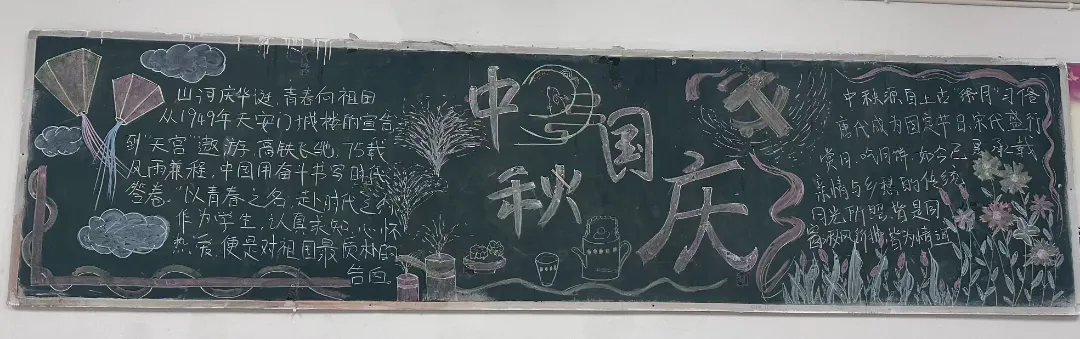 山河庆华诞,青春向祖国
从1949年天安门城楼的宣告
到"天宫"遨游,高铁飞驰,75载
风雨兼程,中国用奋斗书写时代
答卷。"以青春之名,赴时代之约
作为学生,认真求知,心怀
热爱,便是对祖国最质朴的
告白
中秋
国庆
中秋源自上古"祭月"习俗
唐代成为固定节日,宋代盛行
赏月、吃月饼,如今已是承载
亲情与乡愁的传统
月光所照,皆是团